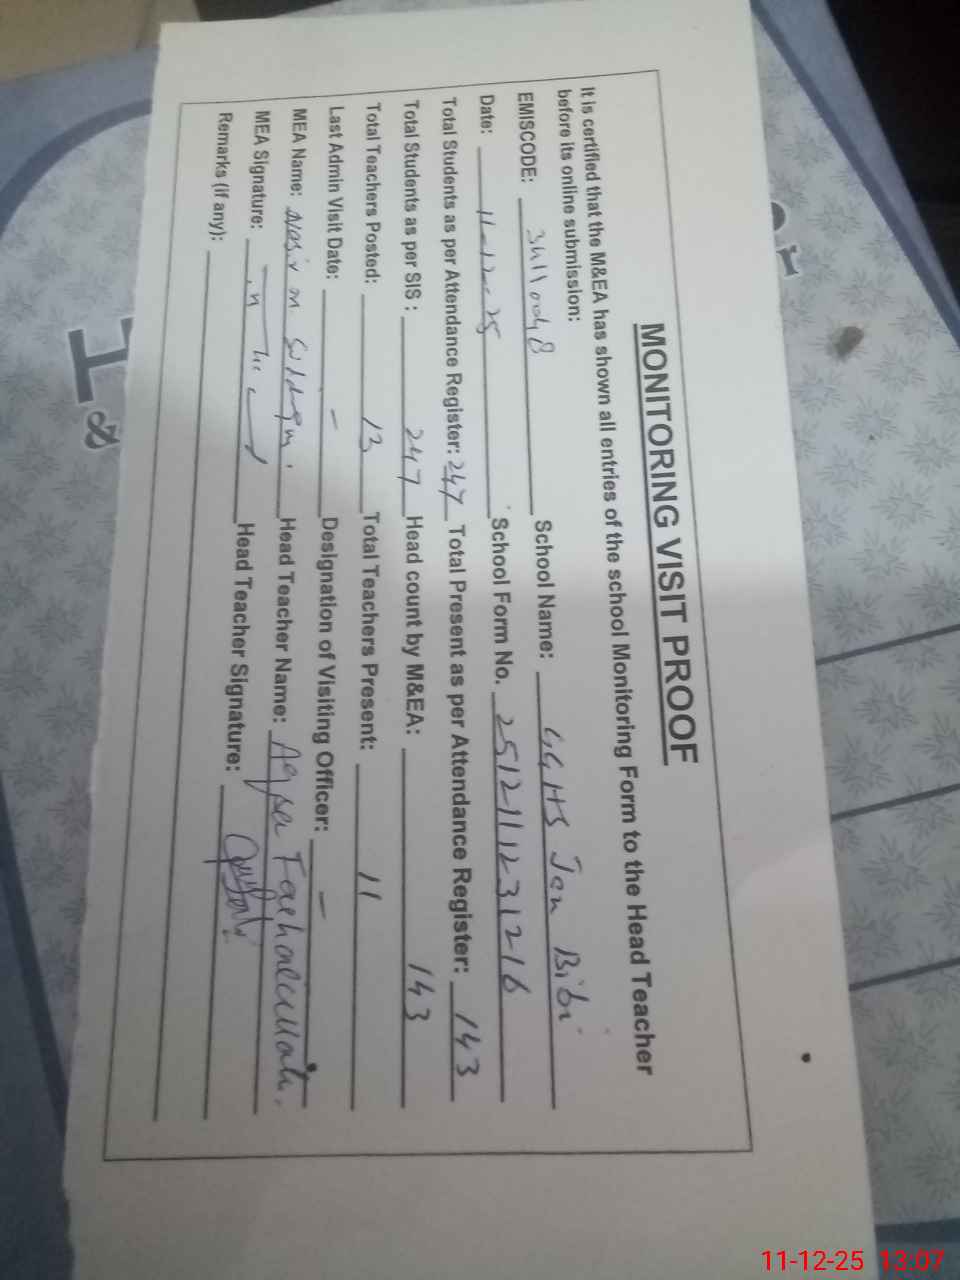 MONITORING VISIT PROOF
It is certified that the M&EA has shown all entries of the school Monitoring Form to the Head Teacher
before its online submission:
EMISCODE: 34110048 School Name: GGHS Jan Bibi
Date: 11-12-25 School Form No. 251211231216
Total Students as per Attendance Register: 247 Total Present as per Attendance Register: 143
Total Students as per SIS : 247 Head count by M&EA: 143
Total Teachers Posted: 13 Total Teachers Present: 11
Last Admin Visit Date: - Designation of Visiting Officer: -
MEA Name: Nasir m. Head Teacher Name: Aqsa
MEA Signature: Head Teacher Signature:
Remarks (if any):
11-12-25 13:07